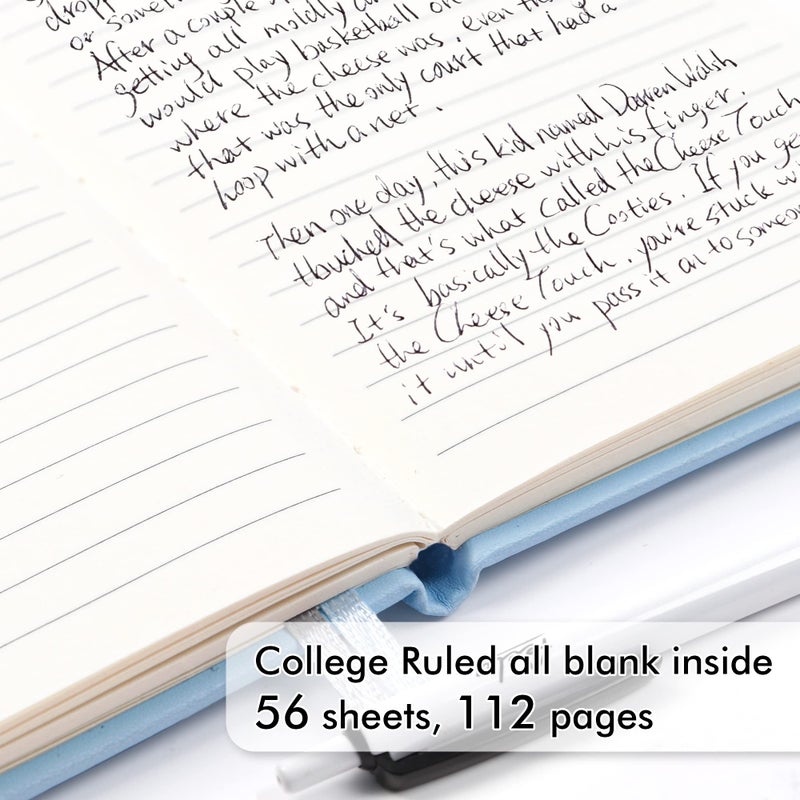 dropp
or som
After a couple
getting all moldly a
would play basketball on
where the cheese was. even th
that was the only court that had a
hoop with a net.
Then one day, this kid named Darren Walsh
touched the cheese with his finger.
and that's what called the Cheese Touch
It's basically the Cooties. If you ge
the Cheese Touch, you're stuck wi
it until you pass it on to someo
College Ruled all blank inside
56 sheets, 112 pages